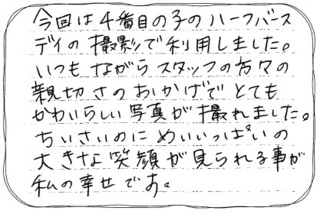 今回は4番目の子のハーフバース
デイの撮影で利用しました。
いつもながらスタッフの方々の
親切さのおかげでとても
かわいらしい写真が撮れました。
ちいさいのにめいいっぱいの
大きな笑顔が見られる事が
私の幸せです。